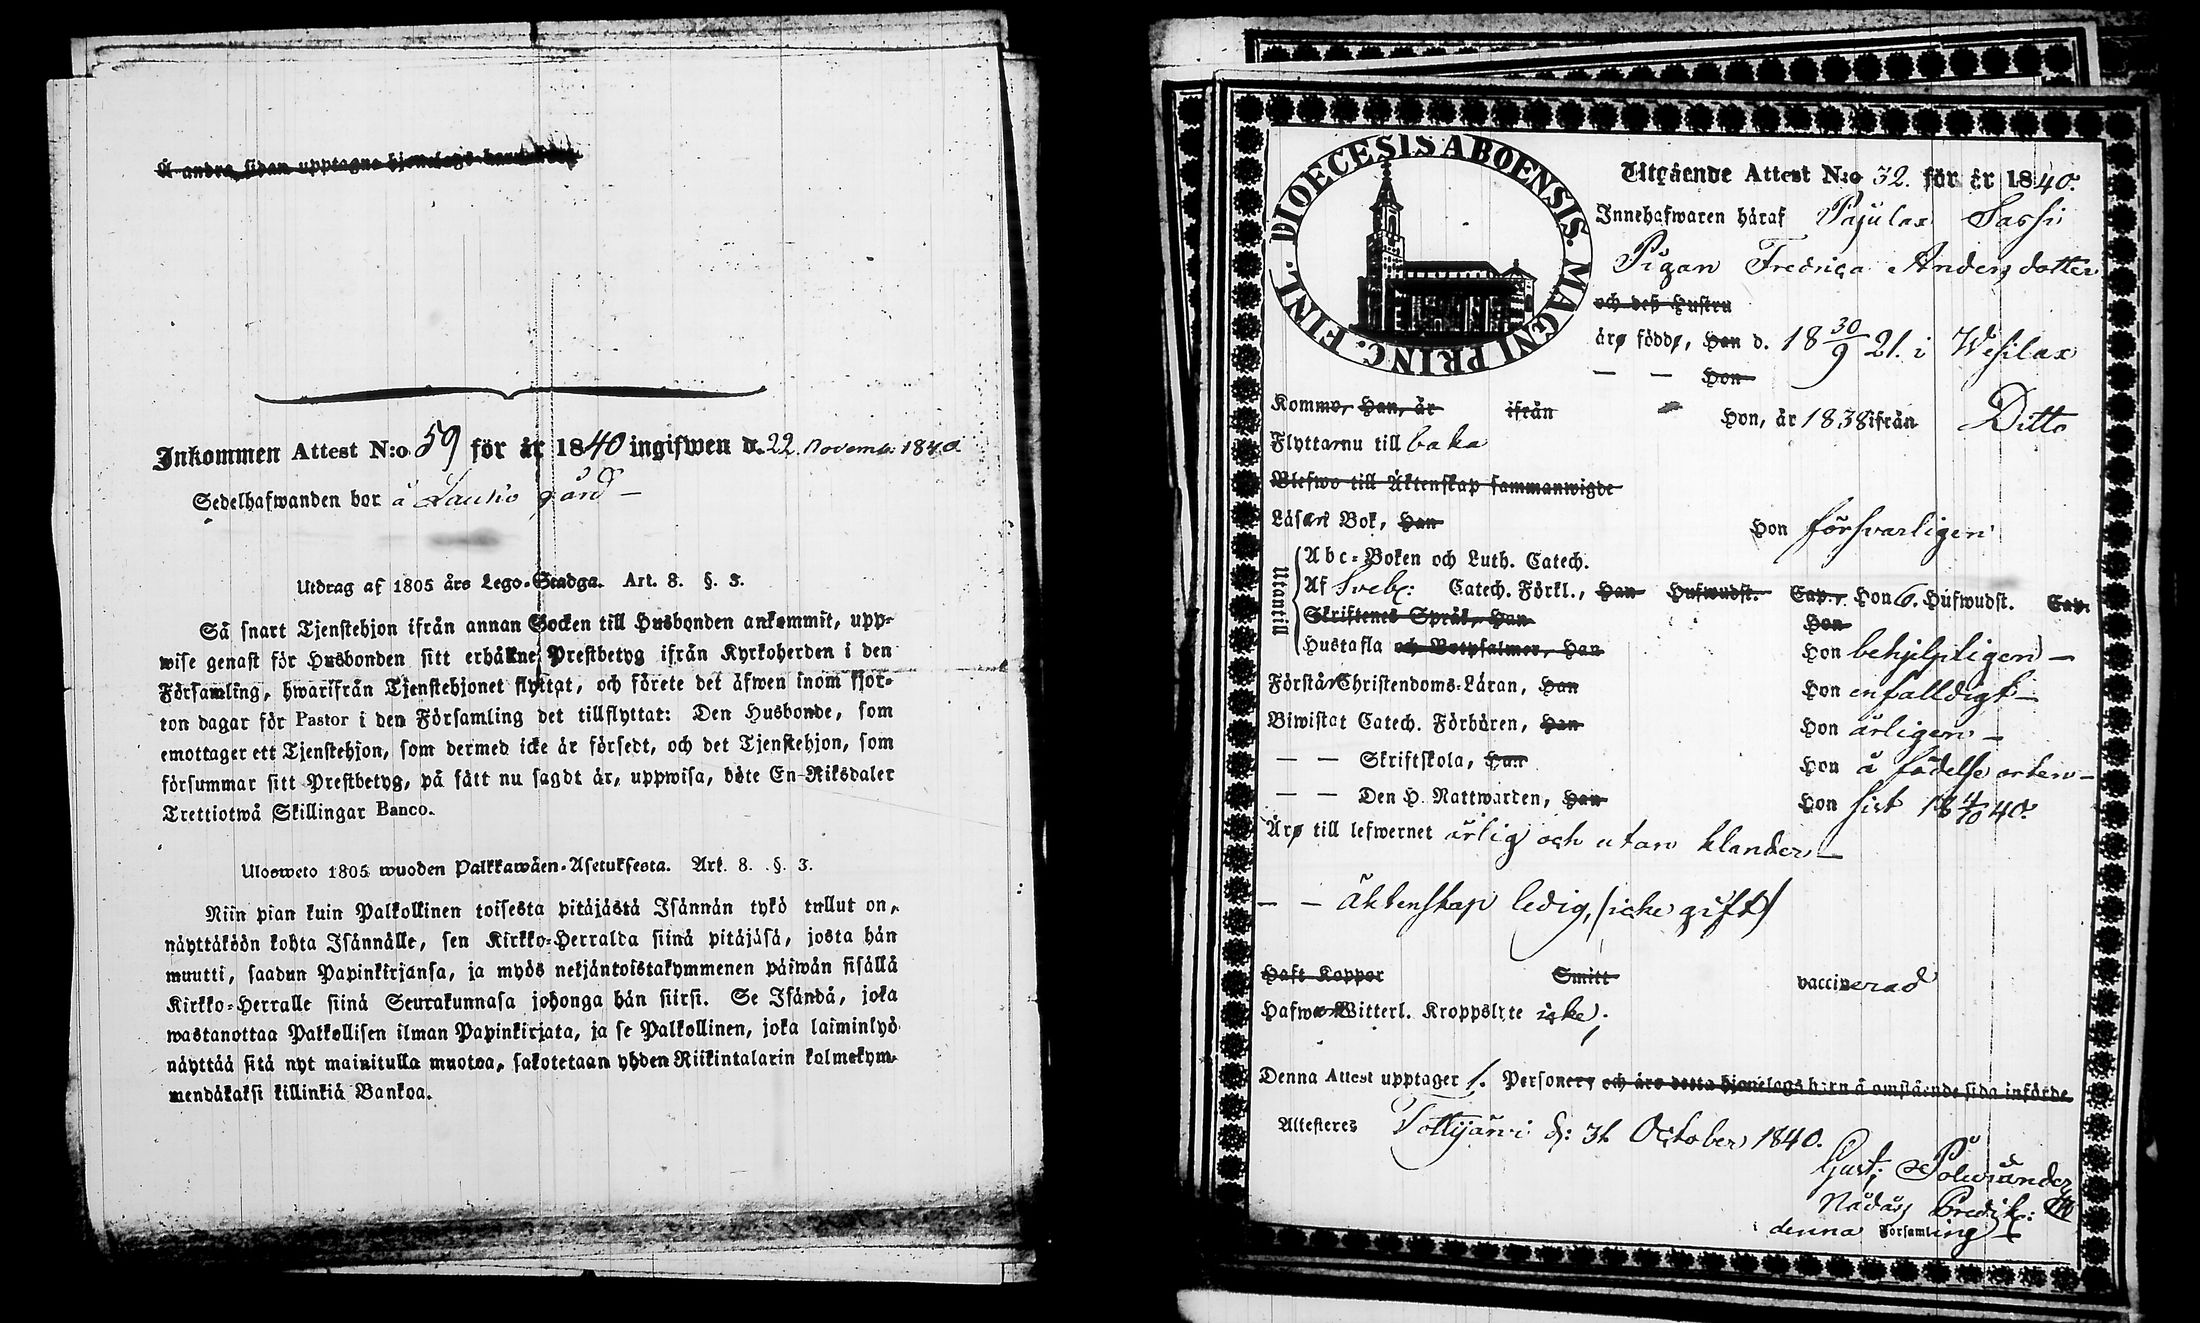 Å andra sidan upptagne hjonelags barn
Inkommen Attest N:o 59 för år 1840 ingifwen d. 22. Novemb. 1840.
Sedelhafwanden bor å Laukko gård —
Utdrag af 1805 års Lego-Stadga. Art. 8. §. 3.
Så snart Tjenstehjon ifrån annan Socken till Husbonden ankommit, upp-
wise genast för Husbonden sitt erhållne Prestbetyg ifrån Kyrkoherden i den
Församling, hwarifrån Tjenstehjonet flyttat, och förete det äfwen inom fjor-
ton dagar för Pastor i den Församling det tillflyttat: Den Husbonde, som
emottager ett Tjenstehjon, som dermed icke är försedt, och det Tjenstehjon, som
försummar sitt Prestbetyg, på sätt nu sagdt är, uppwisa, böte En Riksdaler
Trettiotwå Skillingar Banco.
Ulosweto 1805 wuoden Palkkawäen-Asetuksesta. Art. 8. §. 3.
Niin pian kuin Palkollinen toisesta pitäjästä Isännän tykö tullut on,
näyttäköön kohta Isännälle, sen Kirkko-Herralda siinä pitäjäsä, josta hän
muutti, saadun Papinkirjansa, ja myös neljäntoistakymmenen päiwän sisällä
Kirkko-Herralle siinä Seurakunnasa johonga hän siirsi. Se Isändä, joka
wastanottaa Palkollisen ilman Papinkirjata, ja se Palkollinen, joka laiminlyö
näyttää sitä nyt mainitulla muotoa, sakotetaan yhden Riikintalarin kolmekym-
mendäkaksi killinkiä Bankoa.
DIOECESIS ABOENSIS. MAGNI PRINC. FINL.
Utgående Attest N:o 32. för år 1840.
Innehafwaren häraf Pajulax Sassi
Pigan Fredrica Anders dotter
och deß Hustru
äro födde, Han d. 18 30/9 21. i Wesilax
— — Hon
Komme, Han, år ifrån Hon, år 1838 ifrån Ditto
Flyttar nu till baka
Blefwo till Äktenskap sammanwigde
Läser i Bok, Han Hon försvarligen
Utantill
Abc-Boken och Luth. Catech.
Af Sveb: Catech. Förkl., Han Hufwudst. Cap., Hon 6. Hufwudst. Cap.
Skriftenes Språk, Han Hon
Hustafla och Botpsalmer, Han Hon behjelpligen —
Förstår Christendoms-Läran, Han Hon enfalldigt —
Biwistat Catech. Förhören, Han Hon årligen —
— — Skriftskola, Han Hon å födelse orten —
— — Den H. Nattwarden, Han Hon sist 18 4/10 40.
Äro till lefwernet ärlig och utan klander —
— — äktenskap ledig, (icke gift)
Haft Koppor Smitt vaccinerad
Hafwer Witterl. Kroppslyte icke.
Denna Attest upptager 1. Personer, och äro detta hjonelags barn å omstående sida införde.
Attesteres Tottijärwi d: 31 October 1840.
Gust: Polviander
Nådårs Predik:
denna Församling —